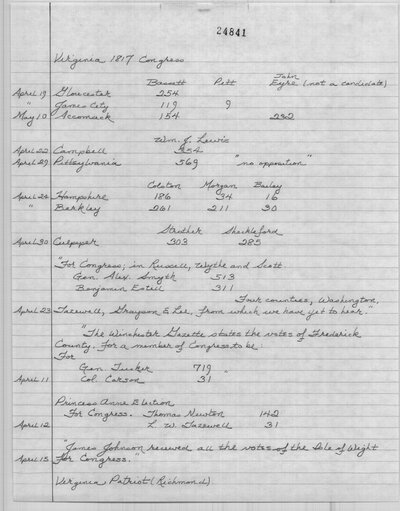 24841
Virginia 1817 Congress
Bassett Pett John Eyre (not a candidate)
April 19 Gloucester 254
" James City 119 9
May 10 Accomack 154 232
Wm. J. Lewis
April 22 Campbell 354
April 29 Pittsylvania 569 "no opposition"
Colston Morgan Bailey
April 24 Hampshire 186 34 16
" Berkley 261 211 30
Strother Shackleford
April 30 Culpeper 303 285
"For Congress; in Russell, Wythe and Scott.
Gen. Alex. Smyth 513
Benjamin Estill 311
Four counties, Washington,
April 23 Tazewell, Grayson & Lee, from which we have yet to hear."
"The Winchester Gazette states the votes of Frederick
County. For a member of Congress to be:
For
Gen. Tucker 719
April 11 Col. Carson 31 "
Princess Anne Election
For Congress. Thomas Newton 142
April 12 L. W. Tazewell 31
"James Johnson received all the votes of the Isle of Wight
April 15 For Congress."
Virginia Patriot (Richmond)